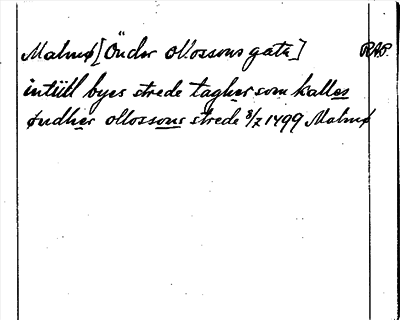 Malmø [Önder Olossons gata] RAP.
intiill byes strede tagher som kalles
øndher Olossons strede 8/7 1499 Malmø